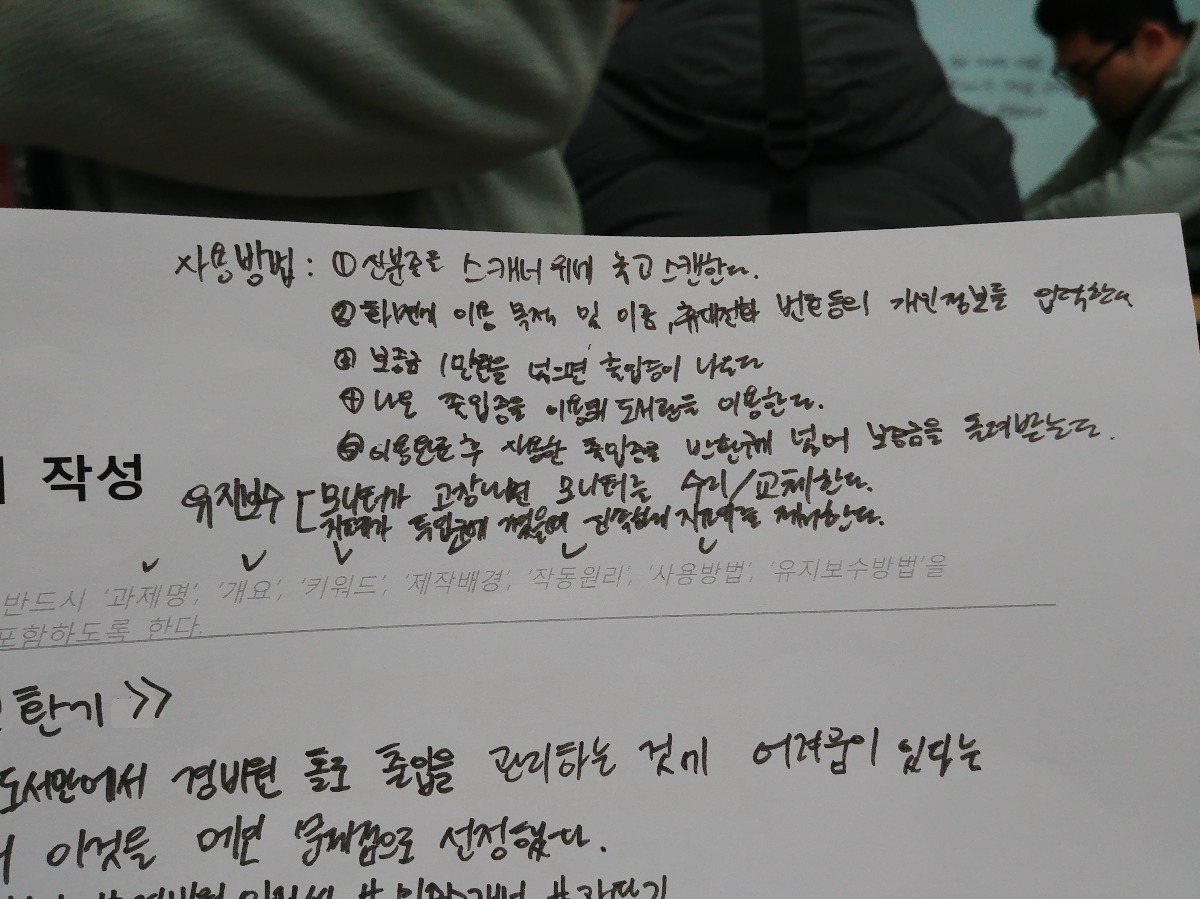 사용방법 : ① 신분증을 스캐너 위에 놓고 스캔한다.
② 화면에 이용 목적 및 이름, 휴대전화 번호 등의 개인정보를 입력한다
③ 보증금 1만원을 넣으면 출입증이 나온다
④ 나온 출입증을 이용해 도서관을 이용한다.
⑤ 이용완료 후 사용한 출입증을 반환구에 넣어 보증금을 돌려받는다.
작성
유지보수 [ 모니터가 고장나면 모니터를 수리/교체한다.
투입구에 꼈을때 신속하게 제거한다.
반드시 '과제명', '개요', '키워드', '제작배경', '작동원리', '사용방법', '유지보수방법'을
포함하도록 한다.
환기 >>
도서관에서 경비원 홀로 출입을 관리하는 것에 어려움이 있다는
이것을 문제점으로 선정했다.